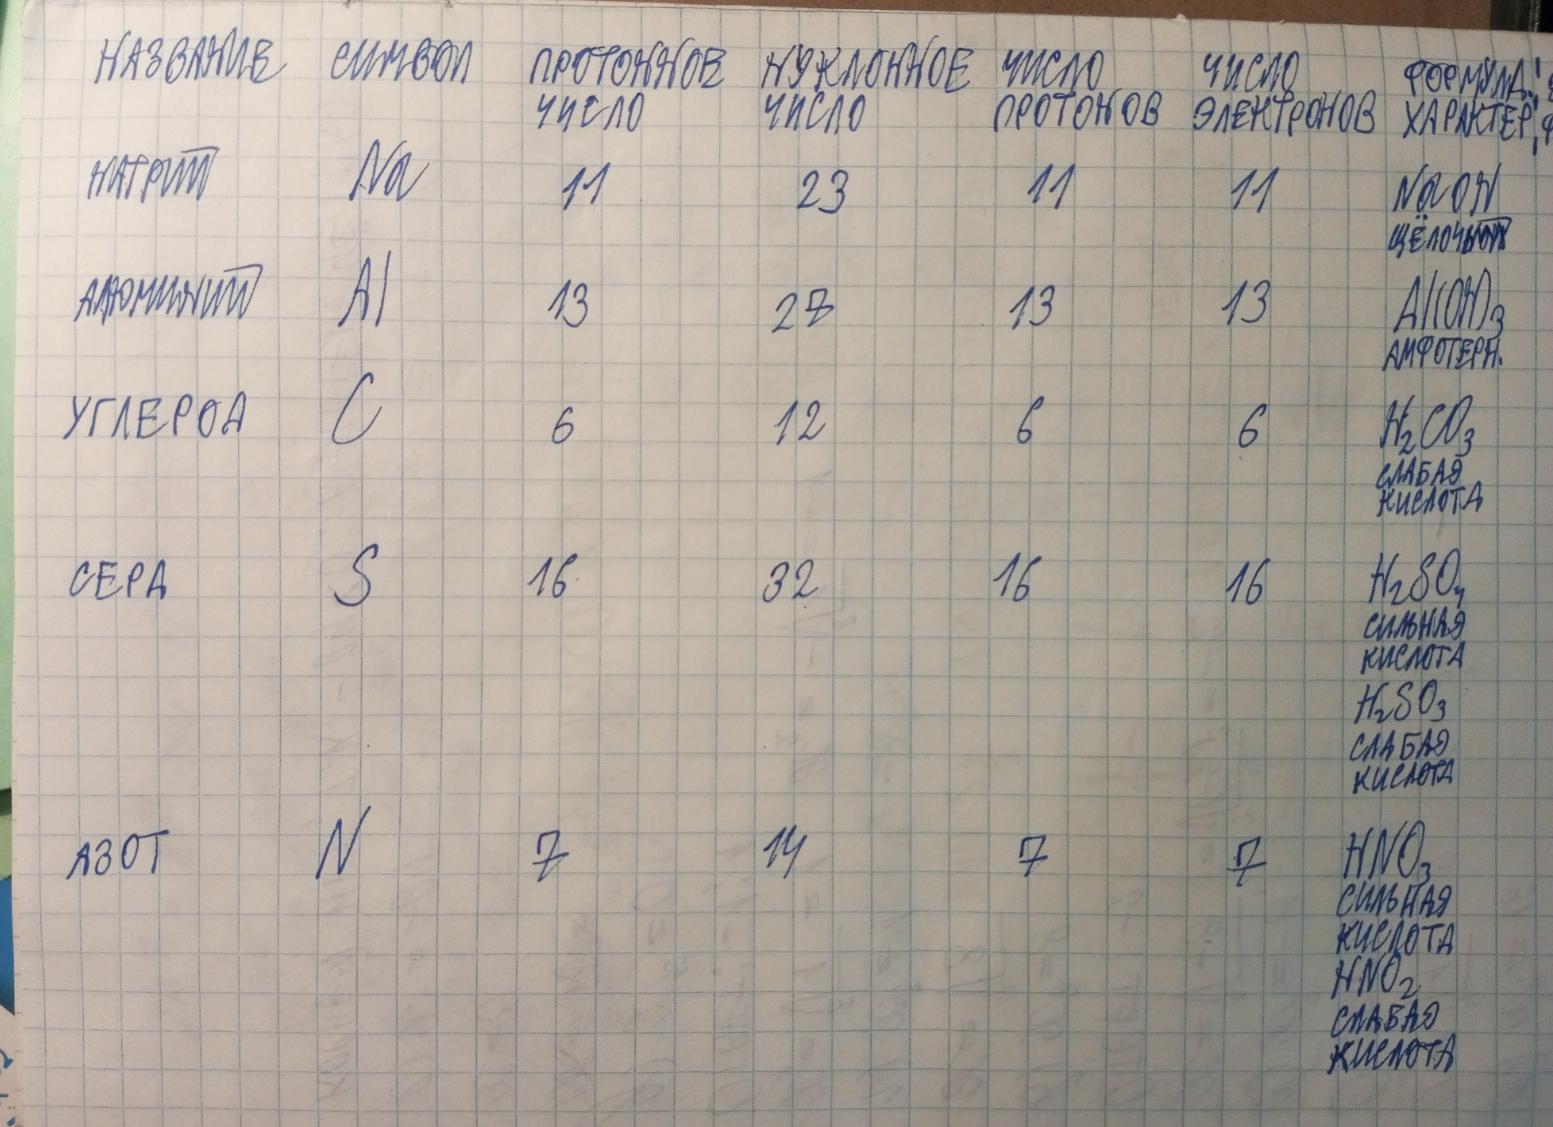 НАЗВАНИЕ СИМВОЛ ПРОТОННОЕ НУКЛОННОЕ ЧИСЛО ЧИСЛО ФОРМУЛА
ЧИСЛО ЧИСЛО ПРОТОНОВ ЭЛЕКТРОНОВ ХАРАКТЕР
НАТРИЙ Na 11 23 11 11 NaOH
ЩЁЛОЧНОЙ
АЛЮМИНИЙ Al 13 27 13 13 Al(OH)₃
АМФОТЕРН.
УГЛЕРОД C 6 12 6 6 H₂CO₃
СЛАБАЯ
КИСЛОТА
СЕРА S 16 32 16 16 H₂SO₄
СИЛЬНАЯ
КИСЛОТА
H₂SO₃
СЛАБАЯ
КИСЛОТА
АЗОТ N 7 14 7 7 HNO₃
СИЛЬНАЯ
КИСЛОТА
HNO₂
СЛАБАЯ
КИСЛОТА